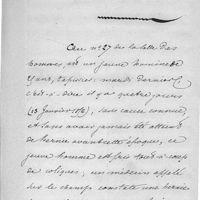 Au n° 27 de la salle des
hommes est un jeune homme de
19 ans, tapissier; mardi dernier
c'est-à-dire il y a quatre jours
(13 Janvier 18), sans cause connue
et sans avoir jamais été atteint
de hernie avant cette époque, ce
jeune homme est pris tout à coup
de coliques, un médecin appelé
sur le champ constate une hernie